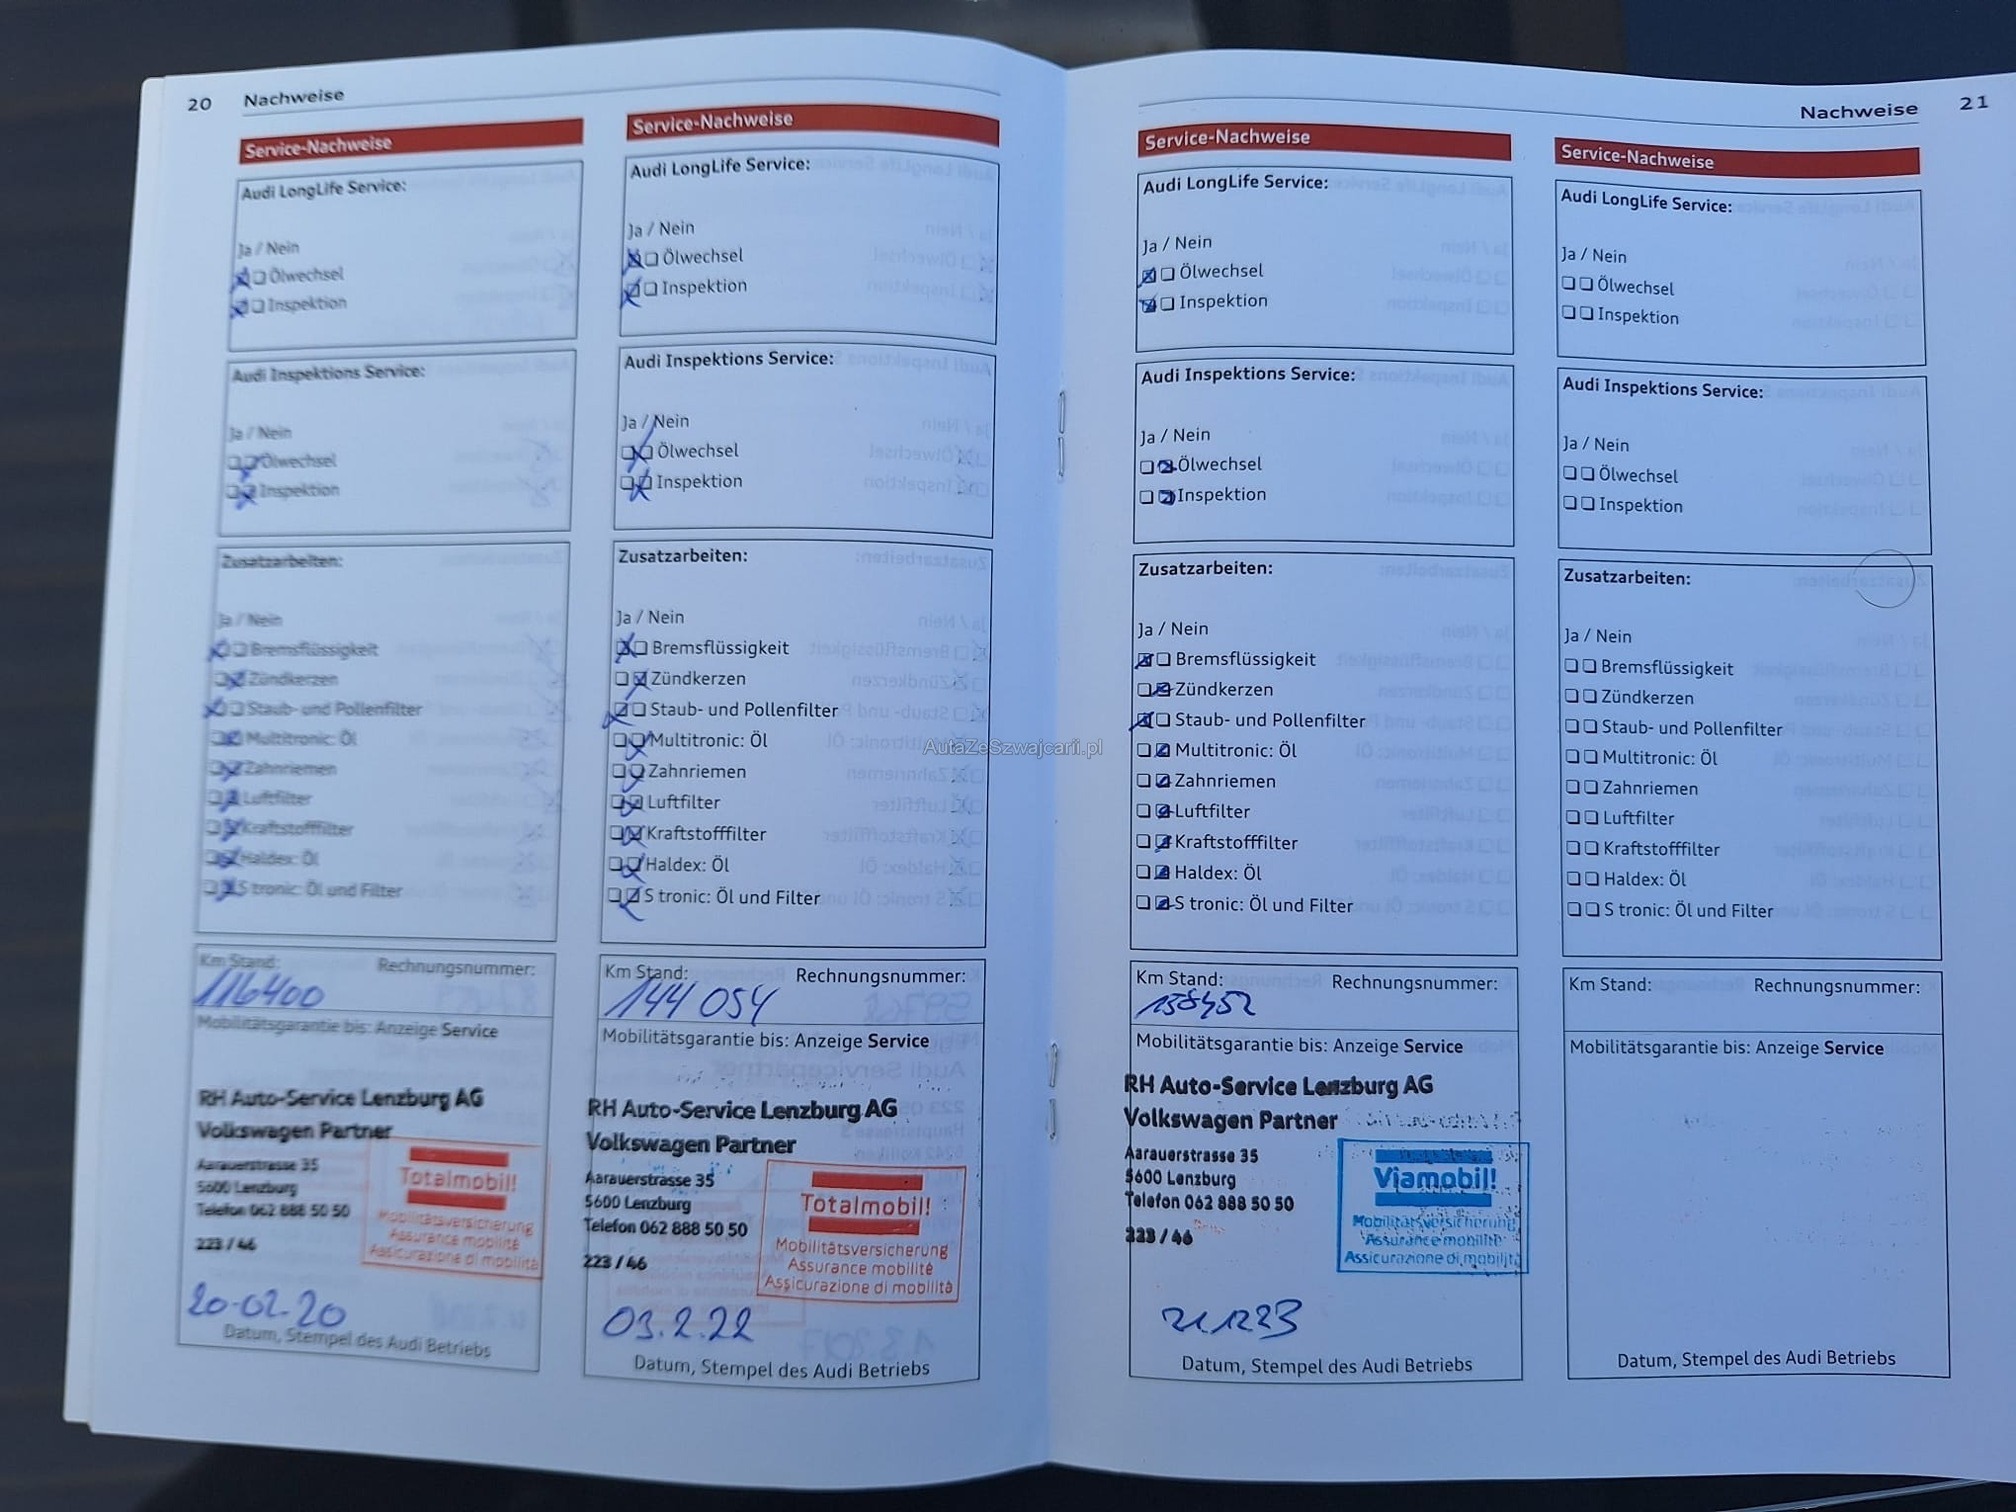 20 Nachweise
Service-Nachweise
Audi LongLife Service:
Ja / Nein
Ölwechsel
Inspektion
Audi Inspektions Service:
Ja / Nein
Ölwechsel
Inspektion
Zusatzarbeiten:
Ja / Nein
Bremsflüssigkeit
Zündkerzen
Staub- und Pollenfilter
Multitronic: Öl
Zahnriemen
Luftfilter
Kraftstofffilter
Haldex: Öl
S tronic: Öl und Filter
Km Stand: Rechnungsnummer:
116400
Mobilitätsgarantie bis: Anzeige Service
RH Auto-Service Lenzburg AG
Volkswagen Partner
Aarauerstrasse 35
5600 Lenzburg
Telefon 062 888 50 50
223 / 46
Totalmobil!
Mobilitätsversicherung
Assurance mobilité
Assicurazione di mobilità
20-02-20
Datum, Stempel des Audi Betriebs
Service-Nachweise
Audi LongLife Service:
Ja / Nein
Ölwechsel
Inspektion
Audi Inspektions Service:
Ja / Nein
Ölwechsel
Inspektion
Zusatzarbeiten:
Ja / Nein
Bremsflüssigkeit
Zündkerzen
Staub- und Pollenfilter
Multitronic: Öl
Zahnriemen
Luftfilter
Kraftstofffilter
Haldex: Öl
S tronic: Öl und Filter
Km Stand: Rechnungsnummer:
144 054
Mobilitätsgarantie bis: Anzeige Service
RH Auto-Service Lenzburg AG
Volkswagen Partner
Aarauerstrasse 35
5600 Lenzburg
Telefon 062 888 50 50
223 / 46
Totalmobil!
Mobilitätsversicherung
Assurance mobilité
Assicurazione di mobilità
03.2.22
Datum, Stempel des Audi Betriebs
AutaZeSzwajcarii.pl
Nachweise 21
Service-Nachweise
Audi LongLife Service:
Ja / Nein
Ölwechsel
Inspektion
Audi Inspektions Service:
Ja / Nein
Ölwechsel
Inspektion
Zusatzarbeiten:
Ja / Nein
Bremsflüssigkeit
Zündkerzen
Staub- und Pollenfilter
Multitronic: Öl
Zahnriemen
Luftfilter
Kraftstofffilter
Haldex: Öl
S tronic: Öl und Filter
Km Stand: Rechnungsnummer:
158452
Mobilitätsgarantie bis: Anzeige Service
RH Auto-Service Lenzburg AG
Volkswagen Partner
Aarauerstrasse 35
5600 Lenzburg
Telefon 062 888 50 50
223 / 46
Viamobil!
Mobilitätsversicherung
Assurance mobilité
Assicurazione di mobilità
Datum, Stempel des Audi Betriebs
Service-Nachweise
Audi LongLife Service:
Ja / Nein
Ölwechsel
Inspektion
Audi Inspektions Service:
Ja / Nein
Ölwechsel
Inspektion
Zusatzarbeiten:
Ja / Nein
Bremsflüssigkeit
Zündkerzen
Staub- und Pollenfilter
Multitronic: Öl
Zahnriemen
Luftfilter
Kraftstofffilter
Haldex: Öl
S tronic: Öl und Filter
Km Stand: Rechnungsnummer:
Mobilitätsgarantie bis: Anzeige Service
Datum, Stempel des Audi Betriebs